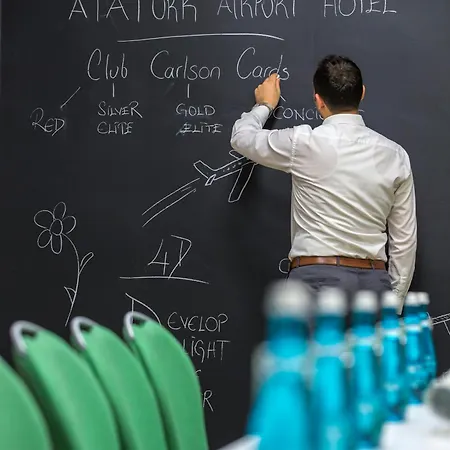 ATATÜRK AIRPORT HOTEL
Club Carlson Cards
RED SILVER GOLD CONCI
ELITE ELITE
4D
D
EVELOP
LIGHT